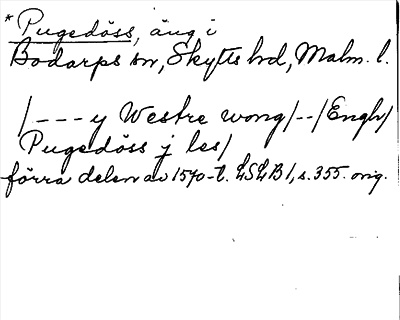 * Pugedöss, äng i
Bodarps sn, Skytts hd, Malm. l.
/--- y Westre wong/--/Engh/
Pugedöss j les/
förra delen av 1570-t. LSLB 1, s. 355. orig.